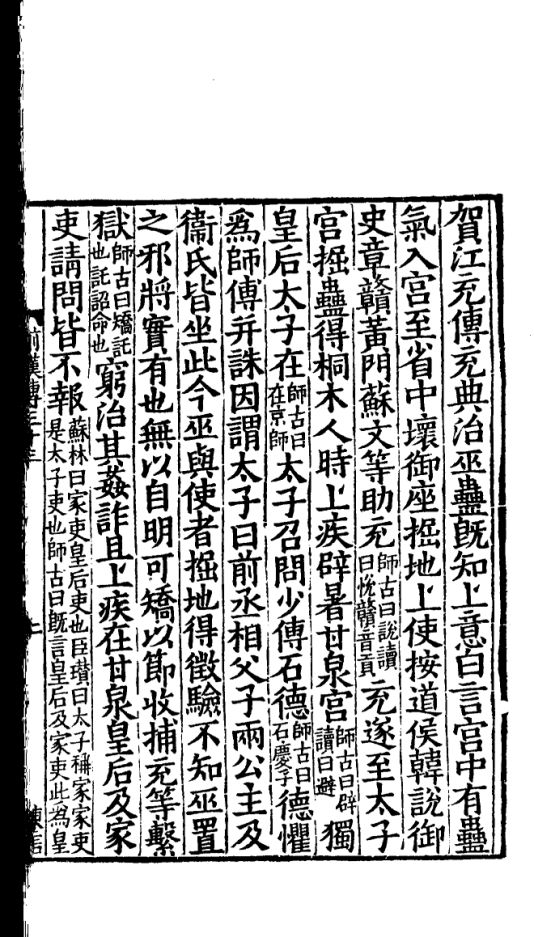 賀江充傳充典治巫蠱旣知上意白言宮中有蠱
氣入宮至省中壞御座掘地上使按道侯韓說御
史章贛黃門蘇文等助充師古曰說讀曰悅贛音貢充遂至太子
宮掘蠱得桐木人時上疾辟暑甘泉宮師古曰辟讀曰避獨
皇后太子在師古曰在京師太子召問少傅石德師古曰石慶子德懼
爲師傅幷誅因謂太子曰前丞相父子兩公主及
衞氏皆坐此今巫與使者掘地得徵驗不知巫置
之邪將實有也無以自明可矯以節收捕充等繫
獄師古曰矯託也託詔命也窮治其姦詐且上疾在甘泉皇后及家
吏請問皆不報蘇林曰家吏皇后吏也臣瓚曰太子稱家家吏是太子吏也師古曰旣言皇后及家吏此為皇